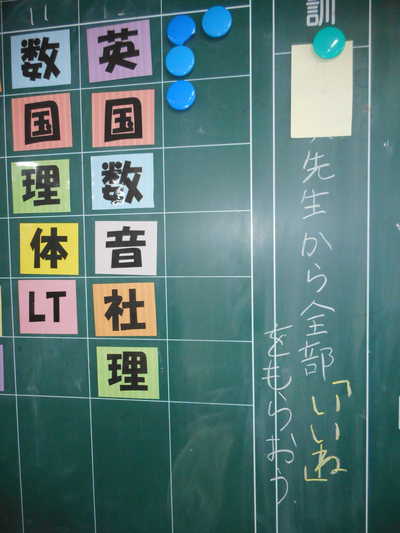 訓
先生から全部「いいね」
をもらおう
英
国
数
音
社
理
11
数
国
理
体
LT